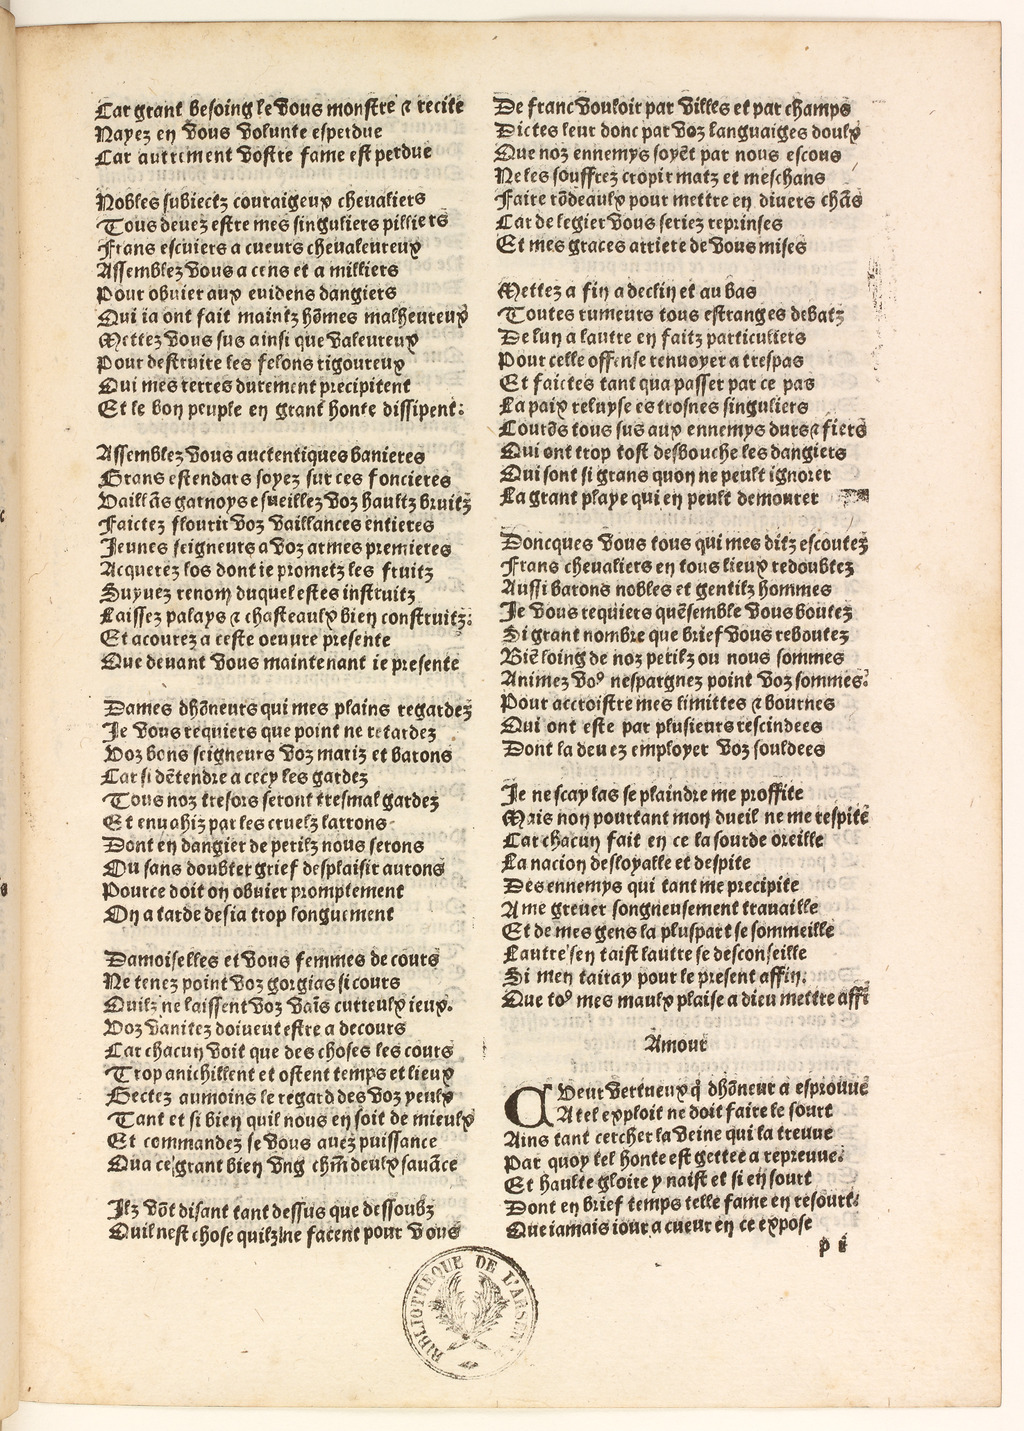 Car grant besoing le vous monstre ⁊ recite
Nayez en vous volunte esperdue
Car autrement vostre fame est perdue
Nobles subiectz couraigeux cheualiers
Tous deuez estre mes singuliers pilliers
Frans escuiers a cueurs cheualeureux
Assemblez vous a cens et a milliers
Pour obuier aux euidens dangiers
Qui ia ont fait maintz hōmes malheureux
Mettez vous sus ainsi que valeureux
Pour destruire les felons rigoureux
Qui mes terres durement precipitent
Et le bon peuple en grant honte dissipent:
Assemblez vous auctentiques banieres
Grans estendars soyez sur ces foncieres
Vaillās garnoys esueillez voz haultz bruitz
Faictez flourir voz vaillances entieres
Jeunes seigneurs a voz armes premieres
Acquerez los dont ie prometz les fruitz
Suyuez renom duquel estes instruitz
Laissez palays ⁊ chasteaulx bien construitz:
Et acourez a ceste oeuure presente
Que deuant vous maintenant ie presente
Dames dhōneurs qui mes plains regardez
Je vous requiers que point ne retardez
Voz bons seigneurs voz mariz et barons
Car si dētendre a cecy les gardez
Tous noz tresors seront tresmal gardez
Et enuahiz par les cruelz larrons
Dont en dangier de perilz nous serons
Ou sans doubter grief desplaisir aurons
Pource doit on obuier promptement
On a tarde desia trop longuement
Damoiselles et vous femmes de cours
Ne tenez point voz gorgias si cours
Quilz ne laissent voz vaīs curteulx ieux.
Voz vanitez doiuent estre a decours
Car chacun voit que des choses les cours
Trop anichillent et ostent temps et lieux
Gectez aumoins le regard des voz yeulx
Tant et si bien quil nous en soit de mieulx
Et commandez se vous auez puissance
Qua ce grant bien vng chm̄ deulx sauāce
Ilz vōt disant tant dessus que dessoubz
Quil nest chose quilz ne facent pour vous
De franc vouloir par villes et par champs
Dictes leur donc par voz languaiges doulx
Que noz ennemys soyēt par nous escous
Ne les souffrez cropir matz et meschans
Faire rōdeaulx pour mettre en diuers chās
Car de legier vous seriez reprinses
Et mes graces arriere de vous mises
Mettez a fin a declin et au bas
Toutes rumeurs tous estranges debatz
De lun a lautre en faitz particuliers
Pour celle offense renuoyer a trespas
Et faictes tant qua passer par ce pas
La paix reluyse es trosnes singuliers
Courōs tous sus aux ennemys durs ⁊ fiers
Qui ont trop tost desbouche les dangiers
Qui sont si grans quon ne peult ignorer
La grant playe qui en peult demourer
Doncques vous tous qui mes ditz escoutez
Frans cheualiers en tous lieux redoubtez
Aussi barons nobles et gentilz hommes
Je vous requiers quēsemble vous boutez
Si grant nombre que brief vous reboutez
Biē loing de noz perilz ou nous sommes
Animez voꝰ nespargnez point voz sommes:
Pour accroistre mes limittes ⁊ bournes
Qui ont este par plusieurs rescindees
Dont la deuez employer voz souldees
Je ne scay las se plaindre me proffite
Mais non pourtant mon dueil ne me respite
Car chacun fait en ce la sourde oreille
La nacion desloyalle et despite
Des ennemys qui tant me precipite
A me greuer songneusement trauaille
Et de mes gens la pluspart se sommeille
Lautre sen taist lautre se desconseille
Si men tairay pour le present affin.
Que toꝰ mes maulx plaise a dieu mettre affī
Amour
Cveur vertueux q̄ dhōneur a esprouue
A tel exploit ne doit faire le sourt
Ains tant cercher la veine qui la treuue
Par quoy tel honte est gettee a repreuue:
Et haulte gloire y naist et si en sourt
Dont en brief temps telle fame en resourt:
Que iamais iour a cueur en ce expose
p i
BIBLIOTHEQUE DE L'ARSENAL